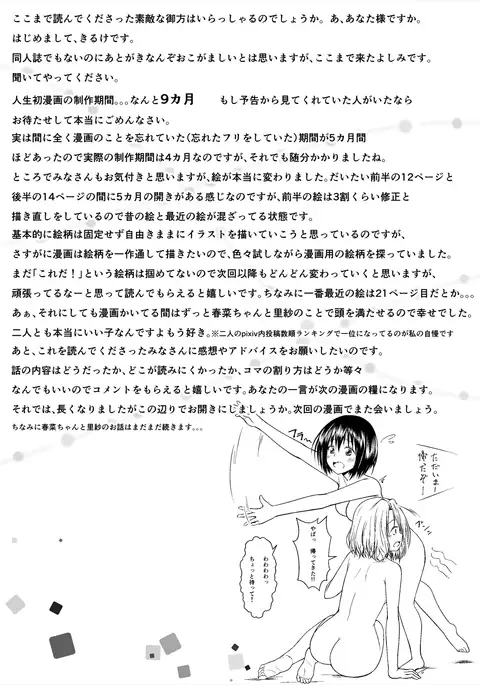 ここまで読んでくださった素敵な御方はいらっしゃるのでしょうか。あ、あなた様ですか。
はじめまして、きるけです。
同人誌でもないのにあとがきなんぞおこがましいとは思いますが、ここまで来たよしみです。
聞いてやってください。
人生初漫画の制作期間。。。なんと9カ月　もし予告から見てくれていた人がいたなら
お待たせして本当にごめんなさい。
実は間に全く漫画のことを忘れていた(忘れたフリをしていた)期間が5カ月間
ほどあったので実際の制作期間は4カ月なのですが、それでも随分かかりましたね。
ところでみなさんもお気付きと思いますが、絵が本当に変わりました。だいたい前半の12ページと
後半の14ページの間に5カ月の開きがある感じなのですが、前半の絵は3割くらい修正と
描き直しをしているので昔の絵と最近の絵が混ざってる状態です。
基本的に絵柄は固定せず自由きままにイラストを描いていこうと思っているのですが、
さすがに漫画は絵柄を一作通して描きたいので、色々試しながら漫画用の絵柄を探っていました。
まだ「これだ！」という絵柄は掴めてないので次回以降もどんどん変わっていくと思いますが、
頑張ってるなーと思って読んでもらえると嬉しいです。ちなみに一番最近の絵は21ページ目だとか。。。
あぁ、それにしても漫画かいてる間はずっと春菜ちゃんと里紗のことで頭を満たせるので幸せでした。
二人とも本当にいい子なんですよもう好き。※二人のpixiv内投稿数順ランキングで一位になってるのが私の自慢です
あと、これを読んでくださったみなさんに感想やアドバイスをお願いしたいのです。
話の内容はどうだったか、どこが読みにくかったか、コマの割り方はどうか等々
なんでもいいのでコメントをもらえると嬉しいです。あなたの一言が次の漫画の糧になります。
それでは、長くなりましたがこの辺りでお開きにしましょうか。次回の漫画でまた会いましょう。
ちなみに春菜ちゃんと里紗のお話はまだまだ続きます。。。
ただいまー
俺だぞー
やばっ 帰ってきた!!!
わわわわっ
ちょっと待って!